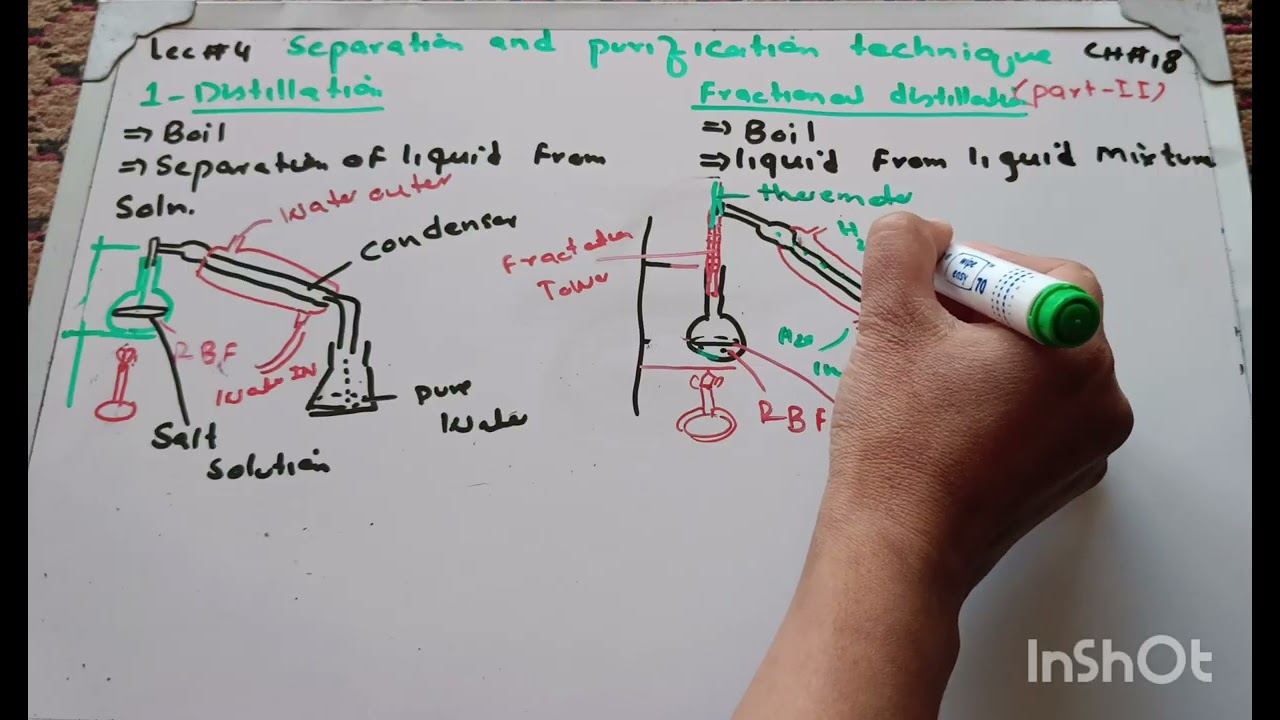 Lec#4 Separation and purification technique CH#18
1- Distillation
⇒ Boil
⇒ Separation of liquid from
Soln.
Water outer
Condenser
RBF
Water IN
Pure
Water
Salt
Solution
Fractional distillation (part-II)
⇒ Boil
⇒ liquid from liquid mixture
Fractation
Tower
H2O
In
RBF
wipe
easy
70
InShOt